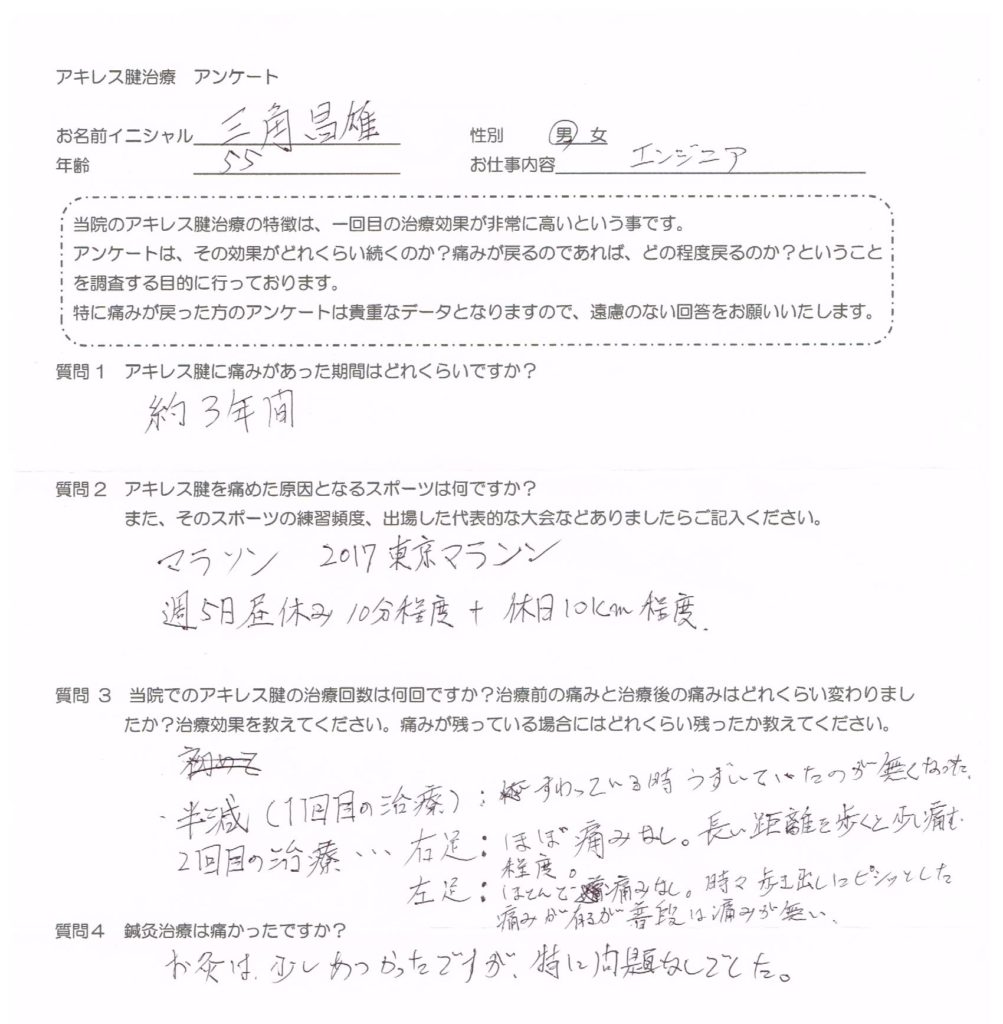 アキレス腱治療　アンケート
お名前イニシャル 三角昌雄 性別 男 女
年齢 55 お仕事内容 エンジニア
当院のアキレス腱治療の特徴は、一回目の治療効果が非常に高いという事です。
アンケートは、その効果がどれくらい続くのか？痛みが戻るのであれば、どの程度戻るのか？ということ
を調査する目的に行っております。
特に痛みが戻った方のアンケートは貴重なデータとなりますので、遠慮のない回答をお願いいたします。
質問１　アキレス腱に痛みがあった期間はどれくらいですか？
約3年間
質問２　アキレス腱を痛めた原因となるスポーツは何ですか？
また、そのスポーツの練習頻度、出場した代表的な大会などありましたらご記入ください。
マラソン　2017 東京マラソン
週5日昼休み 10分程度 + 休日10km 程度.
質問 ３　当院でのアキレス腱の治療回数は何回ですか？治療前の痛みと治療後の痛みはどれくらい変わりまし
たか？治療効果を教えてください。痛みが残っている場合にはどれくらい残ったか教えてください。
初めて
・半減（1回目の治療）: すわっている時うずいていたのが無くなった.
2回目の治療 … 右足: ほぼ痛みなし。長い距離を歩くと少し痛む
程度。
左足: ほとんど痛みなし。時々歩き出しにピシッとした
痛みが有るが普段は痛みが無い.
質問４　鍼灸治療は痛かったですか？
お灸は、少しあつかったですが、特に問題なしでした。